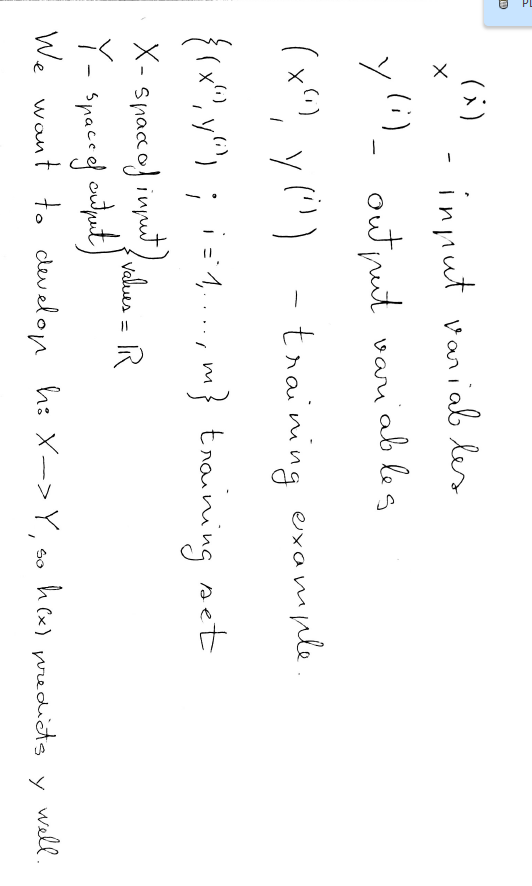 x^(i) - input variables
y^(i) - output variables
(x^(i), y^(i)) - training example.
{(x^(i), y^(i)); i=1,..., m} training set
X - space of input } values = ℝ
Y - space of output }
We want to develop h: X -> Y, so h(x) predicts y well.